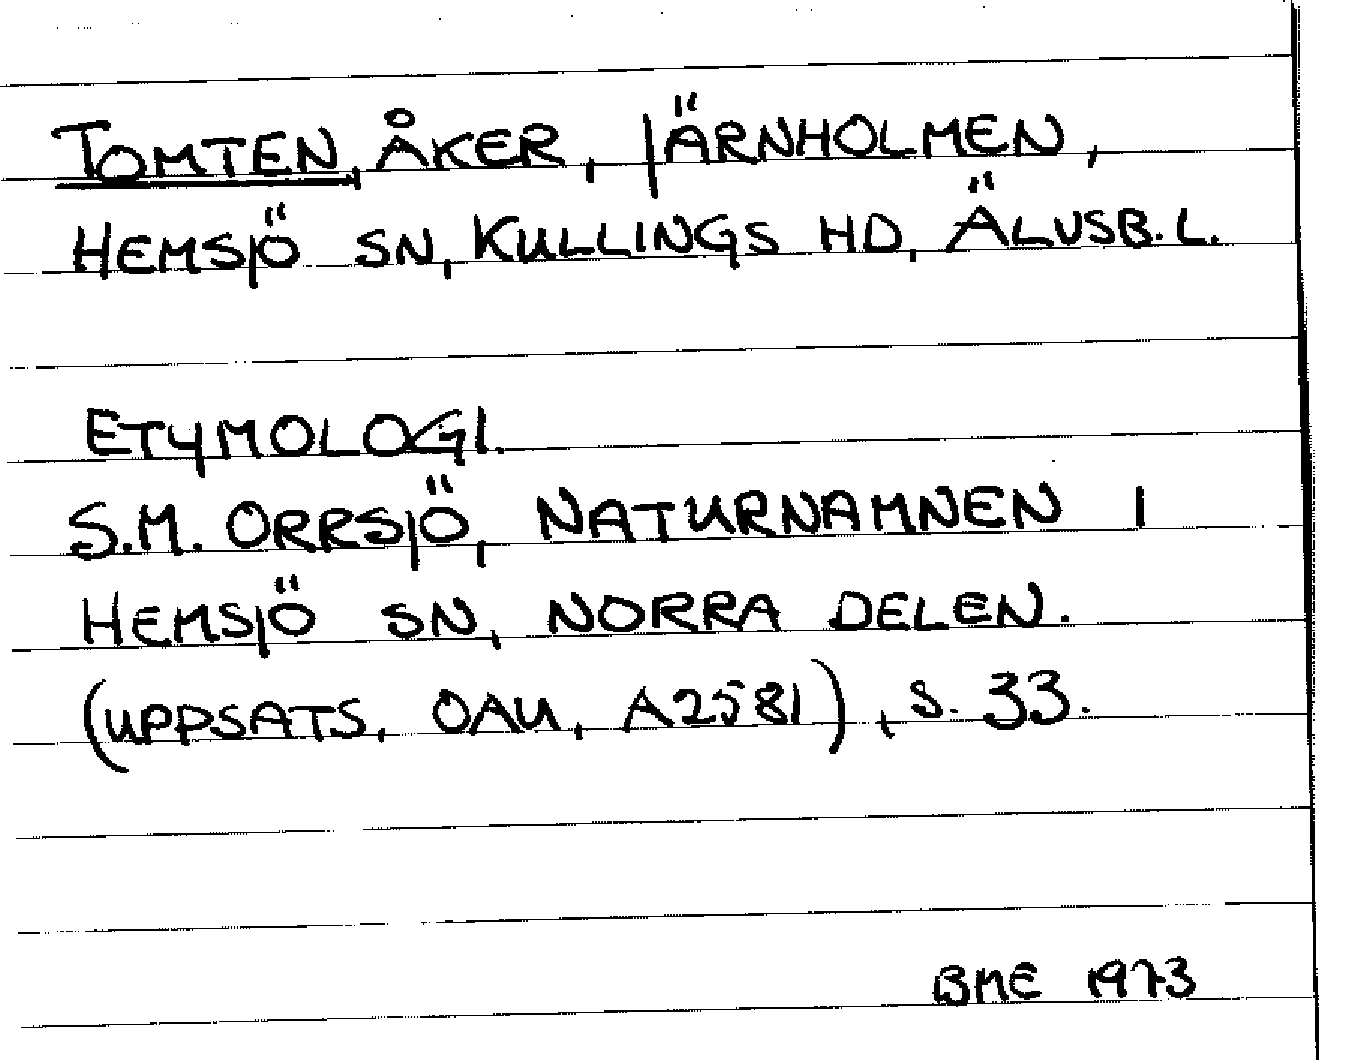 TOMTEN, ÅKER, JÄRNHOLMEN,
HEMSJÖ SN, KULLINGS HD, ÄLVSB. L.
ETYMOLOGI.
S.M. ORRSJÖ, NATURNAMNEN I
HEMSJÖ SN, NORRA DELEN.
(UPPSATS, OAU, A2581), S. 33.
BME 1973